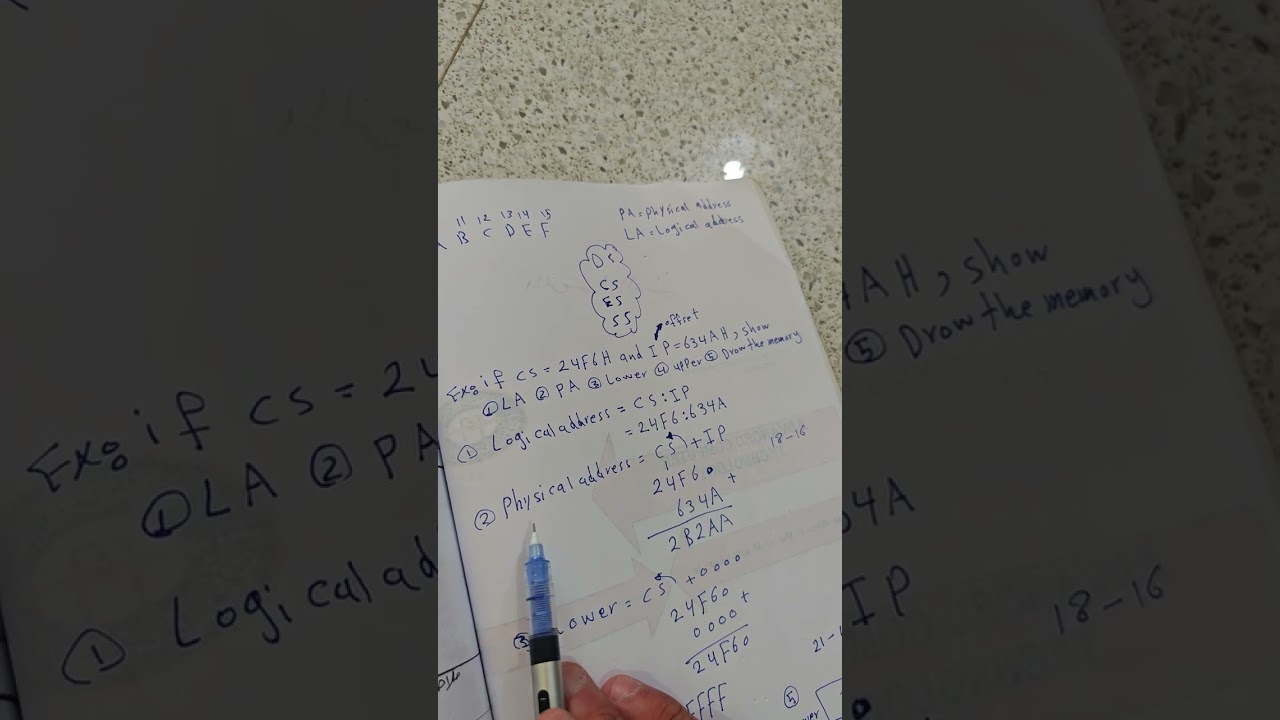 11 12 13 14 15
B C D E F
PA = Physical address
LA = Logical address
DS
CS
ES
SS
offset
Ex: if CS = 24F6H and IP = 634AH, show
① LA ② PA ③ Lower ④ upper ⑤ Drow the memory
① Logical address = CS:IP
= 24F6:634A
② Physical address = CS + IP
18-16
1
24F60
634A +
2B2AA
③ Lower = CS + 0000
24F60
0000 +
24F60
FFFF
⑤